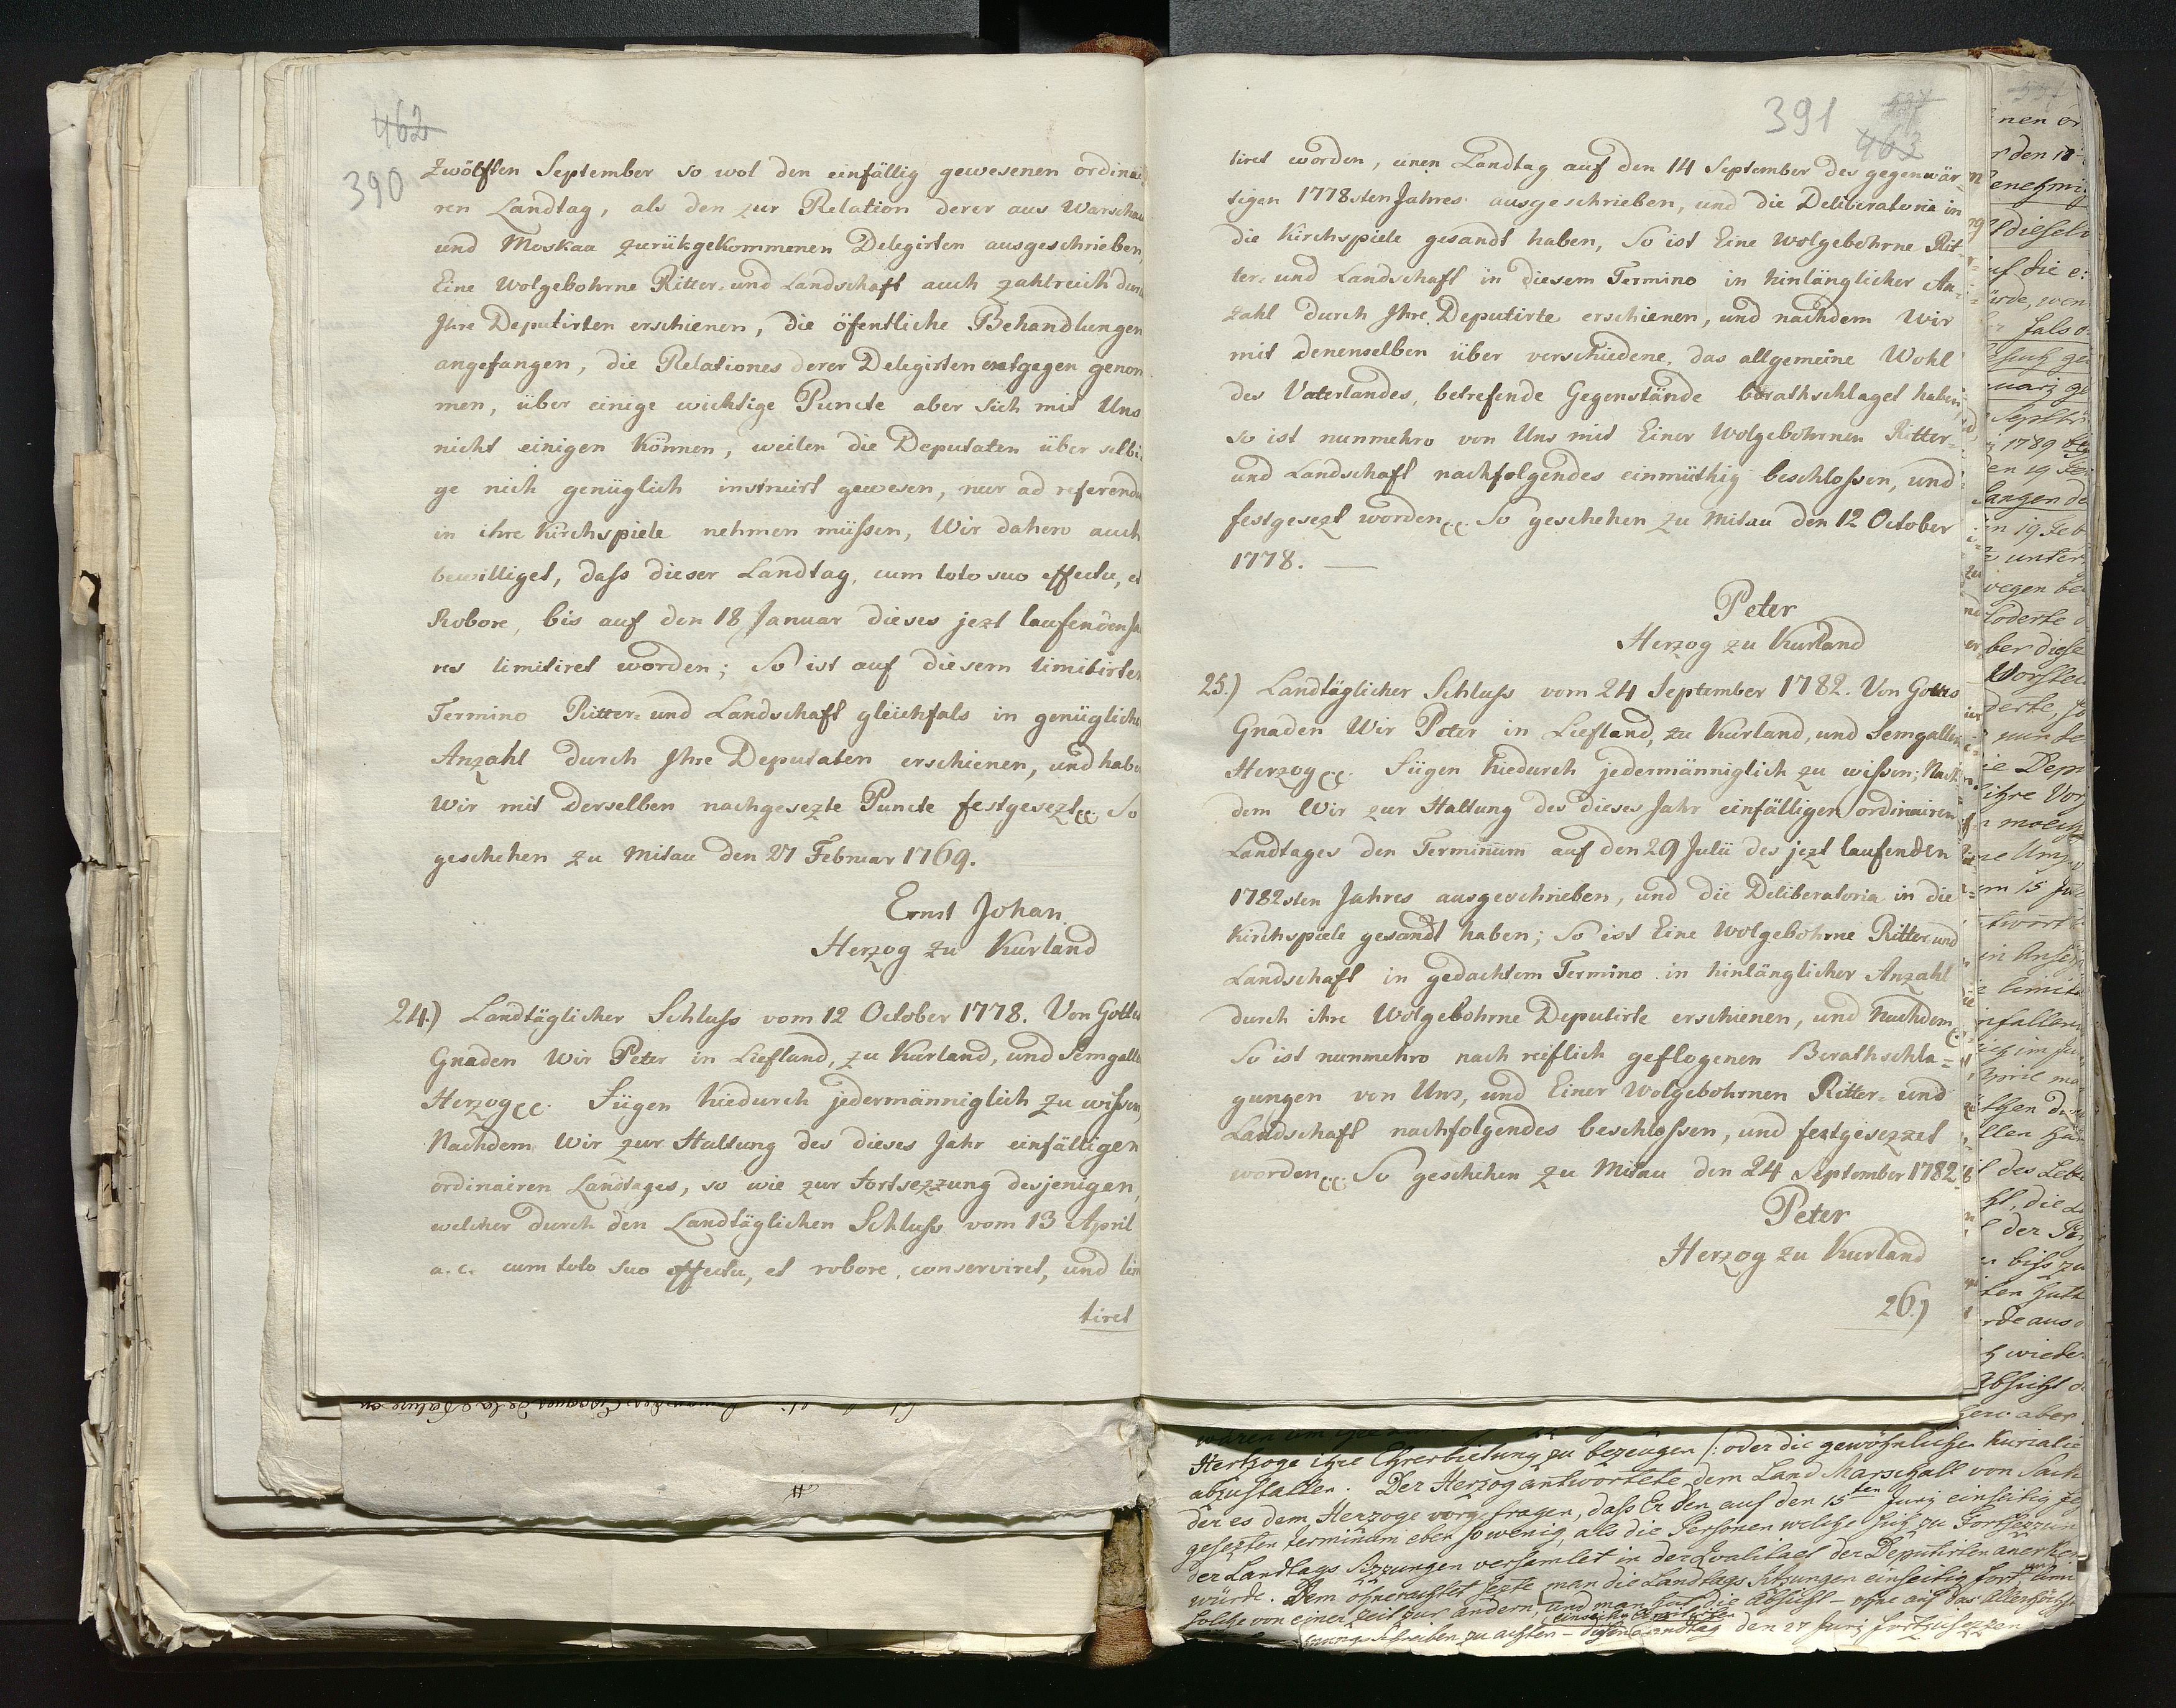 462
390
zwölften September so wol den einfällig gewesenen ordinai
ren Landtag, als den zur Relation derer aus Warschau
und Moskau zurükgekommenen Delegirten ausgeschrieben,
Eine Wolgebohrne Ritter- und Landschaft auch zahlreich durch
Ihre Deputirten erschienen, die öfentliche Behandlungen
angefangen, die Relationes derer Delegirten entgegen genom
men, über einige wichtige Puncte aber sich mit Uns
nicht einigen können, weilen die Deputaten über selbi
ge nich genüglich instruirt gewesen, nur ad referendu
in ihre Kirchspiele nehmen müssen, Wir dahero auch
bewilliget, dass dieser Landtag, cum toto suo effectu, et
Robore, bis auf den 18 Januar dieses jezt laufenden Ja
res limitiret worden; So ist auf diesem limitirten
Termino Ritter- und Landschaft gleichfals in genüglicher
Anzahl durch Ihre Deputaten erschienen, und haben
Wir mit derselben nachgesezte Puncte festgesezt cc. So
geschehen zu Mitau den 27 Februar 1769.
Ernst Johan.
Herzog zu Kurland
24.) Landtäglicher Schluss vom 12 October 1778. Von Gottes
Gnaden Wir Peter in Liefland, zu Kurland, und Semgalle
Herzog cc. Fügen hiedurch jedermänniglich zu wissen,
Nachdem Wir zur Haltung des dieses Jahr einfälligen
ordinairen Landtages, so wie zur Fortsezzung desjenigen,
welcher durch den Landtäglichen Schluss vom 13 April
a. c. cum toto suo effectu, et robore, conserviret, und lim
tiret
391
537
463
tiret worden, einen Landtag auf den 14 September des gegenwär=
tigen 1778sten Jahres ausgeschrieben, und die Deliberatoria in
die Kirchspiele gesandt haben, So ist Eine Wolgebohrne Rit=
ter- und Landschaft in diesem Termino in hinlänglicher An=
zahl durch Ihre Deputirte erschienen, und nachdem Wir
mit denenselben über verschiedene, das allgemeine Wohl
des Vaterlandes, betrefende Gegenstände berathschlaget haben,
so ist nunmehro von Uns mit Einer Wolgebohrnen Ritter=
und Landschaft nachfolgendes einmüthig beschlossen, und
festgesezt worden cc. So geschehen zu Mitau den 12 October
1778. —
Peter
Herzog zu Kurland
25.) Landtäglicher Schluss vom 24 September 1782. Von Gottes
Gnaden Wir Peter in Liefland, zu Kurland, und Semgallen
Herzog cc. Fügen hiedurch jedermänniglich zu wissen; Nach
dem Wir zur Haltung des dieses Jahr einfälligen ordinairen
Landtages den Terminum auf den 29 Julii des jezt laufenden
1782sten Jahres ausgeschrieben, und die Deliberatoria in die
Kirchspiele gesandt haben; So ist Eine Wolgebohrne Ritter- und
Landschaft in gedachtem Termino in hinlänglicher Anzahl
durch ihre Wolgebohrne Deputirte erschienen, und Nachdem cc.
So ist nunmehro nach reiflich geflogenen Berathschla=
gungen von Uns, und Einer Wolgebohrnen Ritter- und
Landschaft nachfolgendes beschlossen, und festgesezzet
worden cc. So geschehen zu Mitau den 24 September 1782.
Peter
Herzog zu Kurland
26.)
Hertzoge ihre Ehrerbietung zu bezeugen /: oder die gewöhnliche Kurialie
abzustatten. Der Herzog antwortete dem Land Marschall von Sack
der es dem Herzoge vorgetragen, dass Er den auf den 15ten Junj einseitig fe
gesezten terminum eben so wenig, als die Personen welche sich zu Fortsezzun
der Landtags Sizzungen versamlet in der Qvalitaet der Deputirten anerken
würde. Dem ohnerachtet sezte man die Landtags Sitzungen einseitig fort
solche von einer Zeit zur andern, und man hat die Absicht – ohne auf das Allerhöchste
einseitig limitirten
schreiben zu achten – diesen Landtag den 27 Junj fortzusezzen